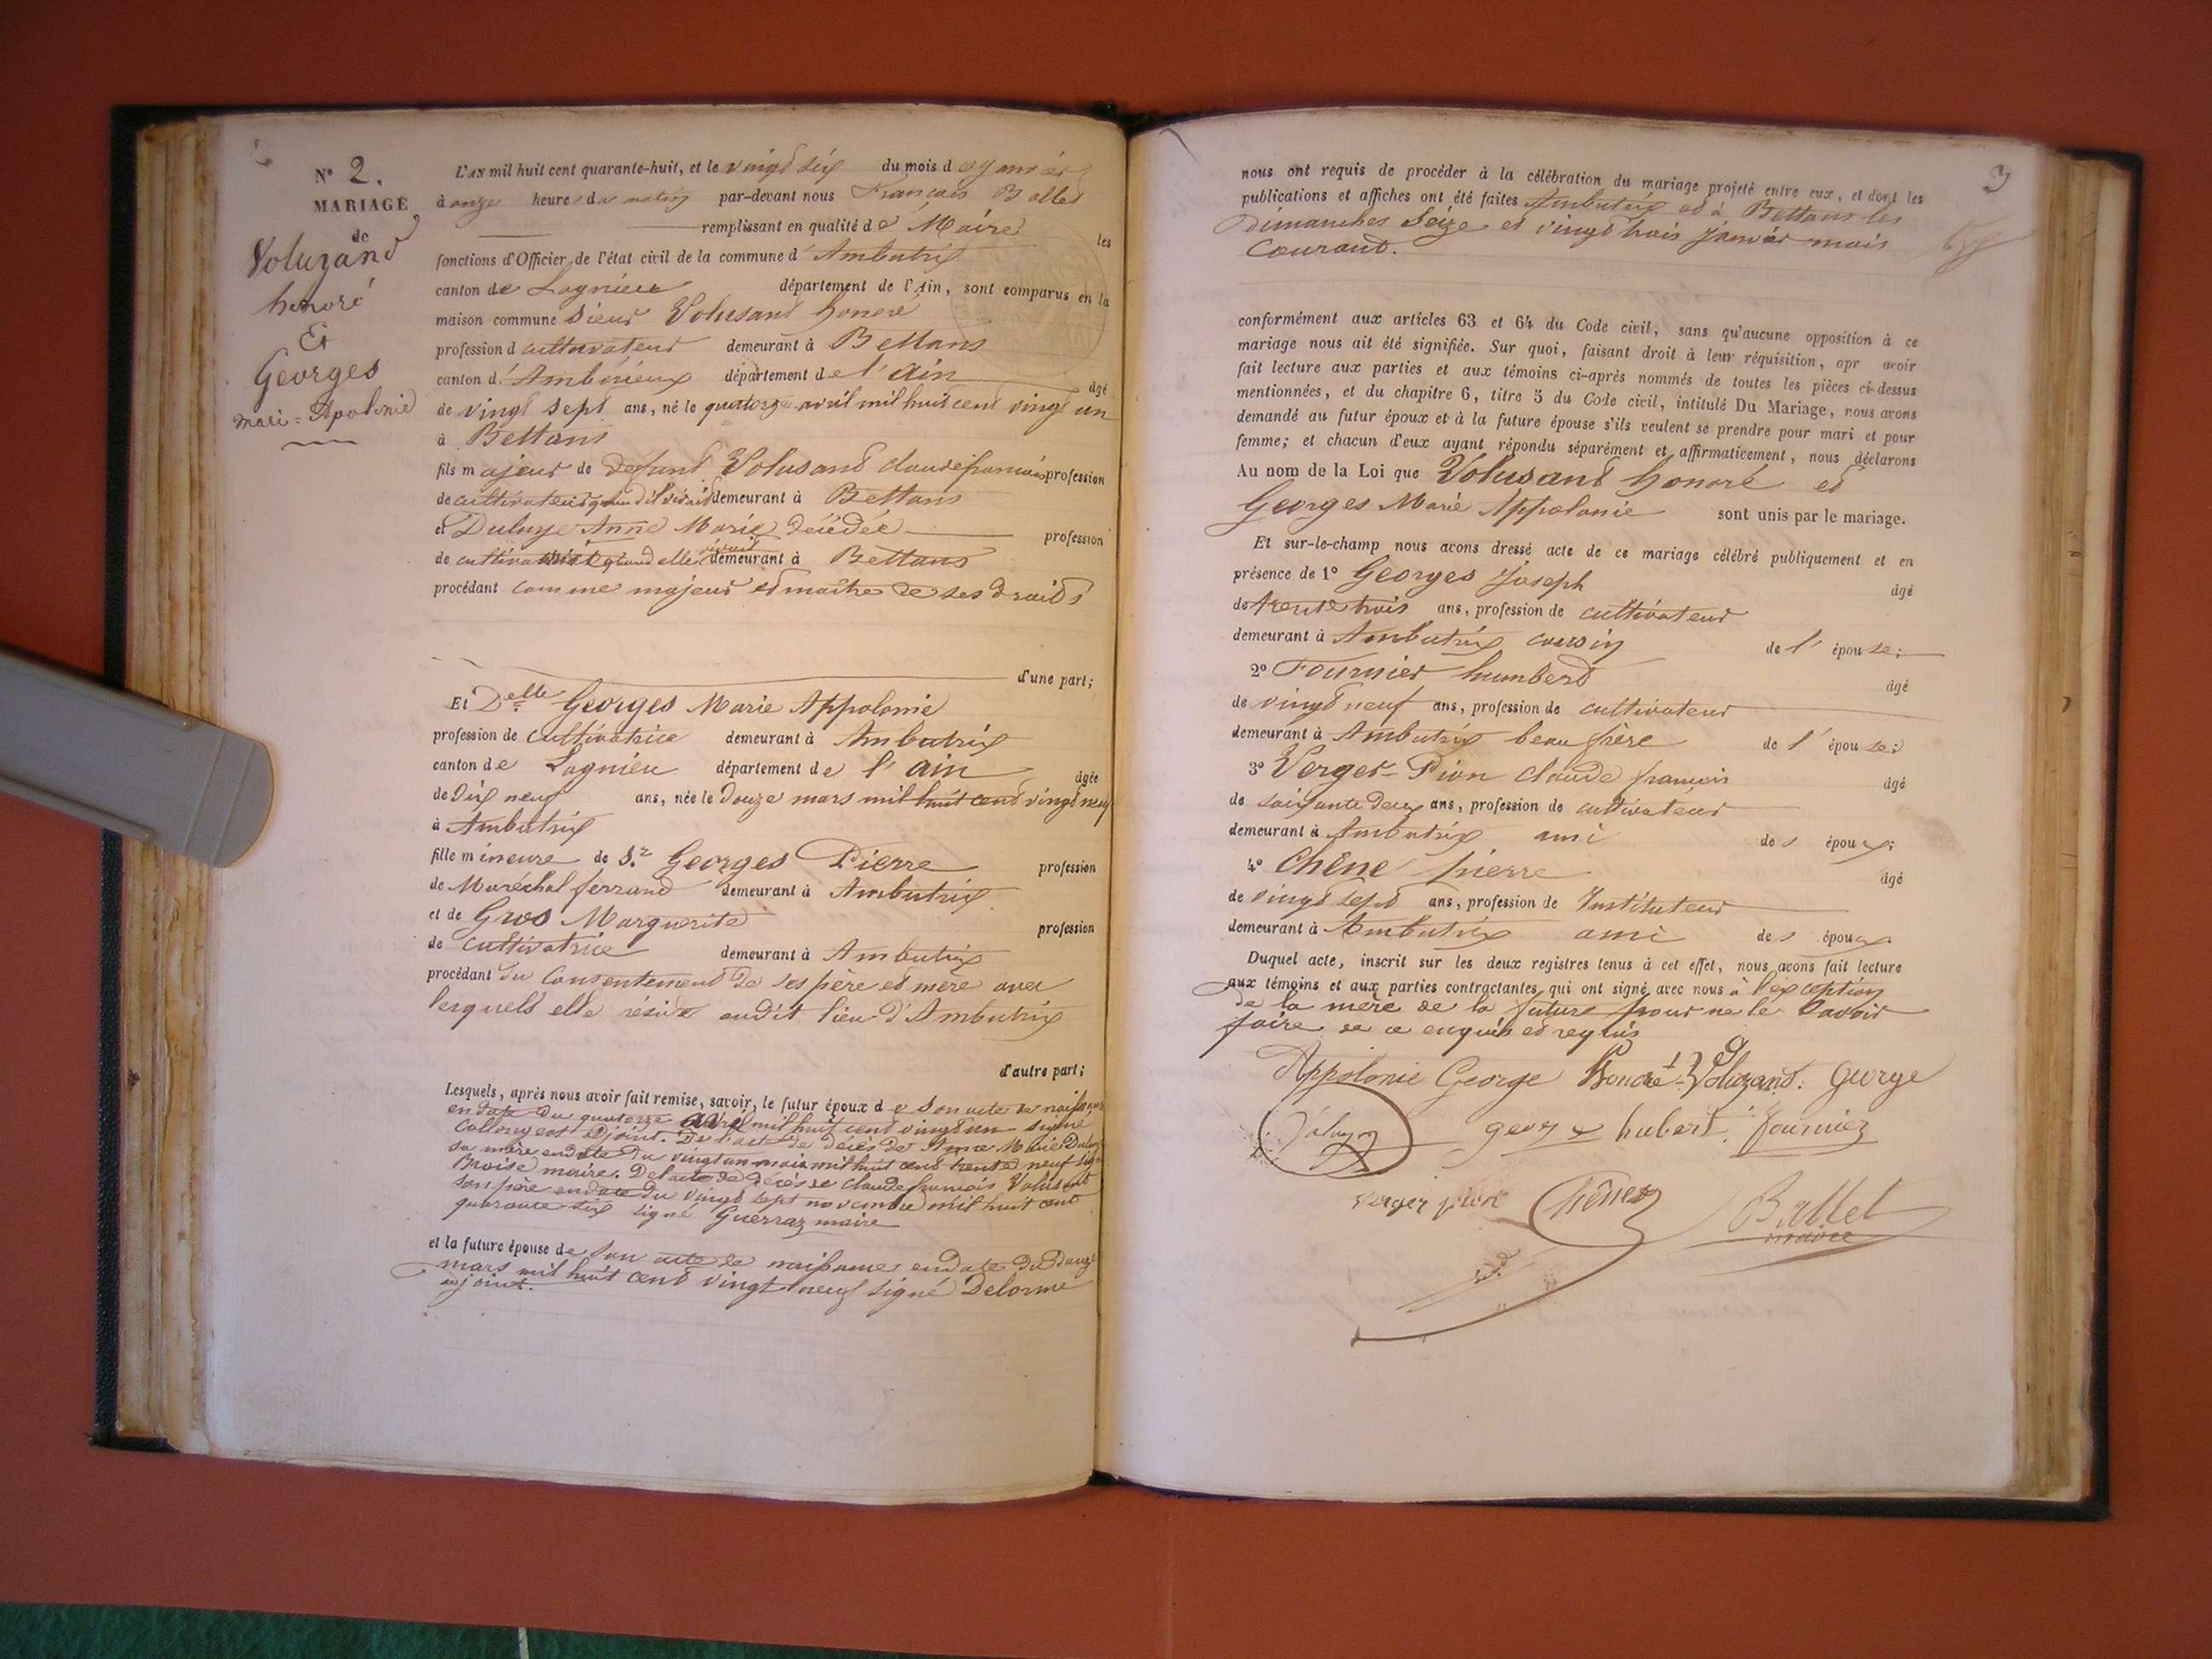 N° 2.
MARIAGE
de
Voluzand
honoré
Et
Georges
Mari=Apolonie
L'AN mil huit cent quarante-huit, et le vingt six du mois de janvier
à onze heures du matin par-devant nous François Ballet
remplissant en qualité de Maire les
fonctions d'Officier de l'état civil de la commune d'Ambutrix
canton de Lagnieu département de l'Ain, sont comparus en la
maison commune Sieur Volusant honoré
profession d cultivateur demeurant à Bettans
canton d'Ambérieux département de l'ain âgé
de vingt sept ans, né le quatorze avril mil huit cent vingt un
à Bettans
fils majeur de defunt Volusant claude francois profession
de cultivateur quand il vivait demeurant à Bettans
et Duluye Anne Marie décédée profession
de cultivatrice quand elle vivait demeurant à Bettans
procédant comme majeur et maître de ses droits
d'une part;
Et Delle Georges Marie Appolonie
profession de cultivatrice demeurant à Ambutrix
canton de Lagnieu département de l'ain âgée
de Dix neuf ans, née le Douze mars mil huit cent vingt neuf
à Ambutrix
fille mineure de Sr Georges Pierre profession
de Maréchal ferrand demeurant à Ambutrix
et de Gros Marguerite profession
de cultivatrice demeurant à Ambutrix
procédant du consentement de ses père et mère avec
lesquels elle réside audit lieu d'Ambutrix
d'autre part;
Lesquels, après nous avoir fait remise, savoir, le futur époux de son acte de naissance
en date du quatorze avril mil huit cent vingt un signé
Collonge adjoint. De l'acte de décès de Anne Marie
sa mère en date du vingt un mai mil huit cent trente neuf signé
Broise maire. De l'acte de décès de claude francois Volusant
son père en date du vingt sept novembre mil huit cent
quarante six signé Guerraz maire
et la future épouse de son acte de naissance en date du Douze
mars mil huit cent vingt neuf signé Delorme
adjoint.
3
nous ont requis de procéder à la célébration du mariage projeté entre eux, et dont les
publications et affiches ont été faites Ambutrix et à Bettans les
Dimanches Seize et vingt trois janvier mois
Courant.
conformément aux articles 63 et 64 du Code civil, sans qu'aucune opposition à ce
mariage nous ait été signifiée. Sur quoi, faisant droit à leur réquisition, apr avoir
fait lecture aux parties et aux témoins ci-après nommés de toutes les pièces ci-dessus
mentionnées, et du chapitre 6, titre 5 du Code civil, intitulé Du Mariage, nous avons
demandé au futur époux et à la future épouse s'ils veulent se prendre pour mari et pour
femme; et chacun d'eux ayant répondu séparément et affirmativement, nous déclarons
Au nom de la Loi que Volusant honoré et
Georges Marie Appolonie sont unis par le mariage.
Et sur-le-champ nous avons dressé acte de ce mariage célébré publiquement et en
présence de 1° Georges Joseph âgé
de trente trois ans, profession de cultivateur
demeurant à Ambutrix cousin de l'épouse;
2° Fournier humbert âgé
de vingt neuf ans, profession de cultivateur
demeurant à Ambutrix beau frère de l'épouse;
3° Verger-Pion claude francois âgé
de soixante deux ans, profession de cultivateur
demeurant à Ambutrix ami des époux;
4° Chêne pierre âgé
de vingt sept ans, profession de Instituteur
demeurant à Ambutrix ami des époux
Duquel acte, inscrit sur les deux registres tenus à cet effet, nous avons fait lecture
aux témoins et aux parties contractantes, qui ont signé avec nous à l'exception
de la mère de la future pour ne le savoir
faire de ce enquis et requis
Appolonie George Honoré Voluzand. george
george hubert fournier
verger pion Chêne Ballet
maire